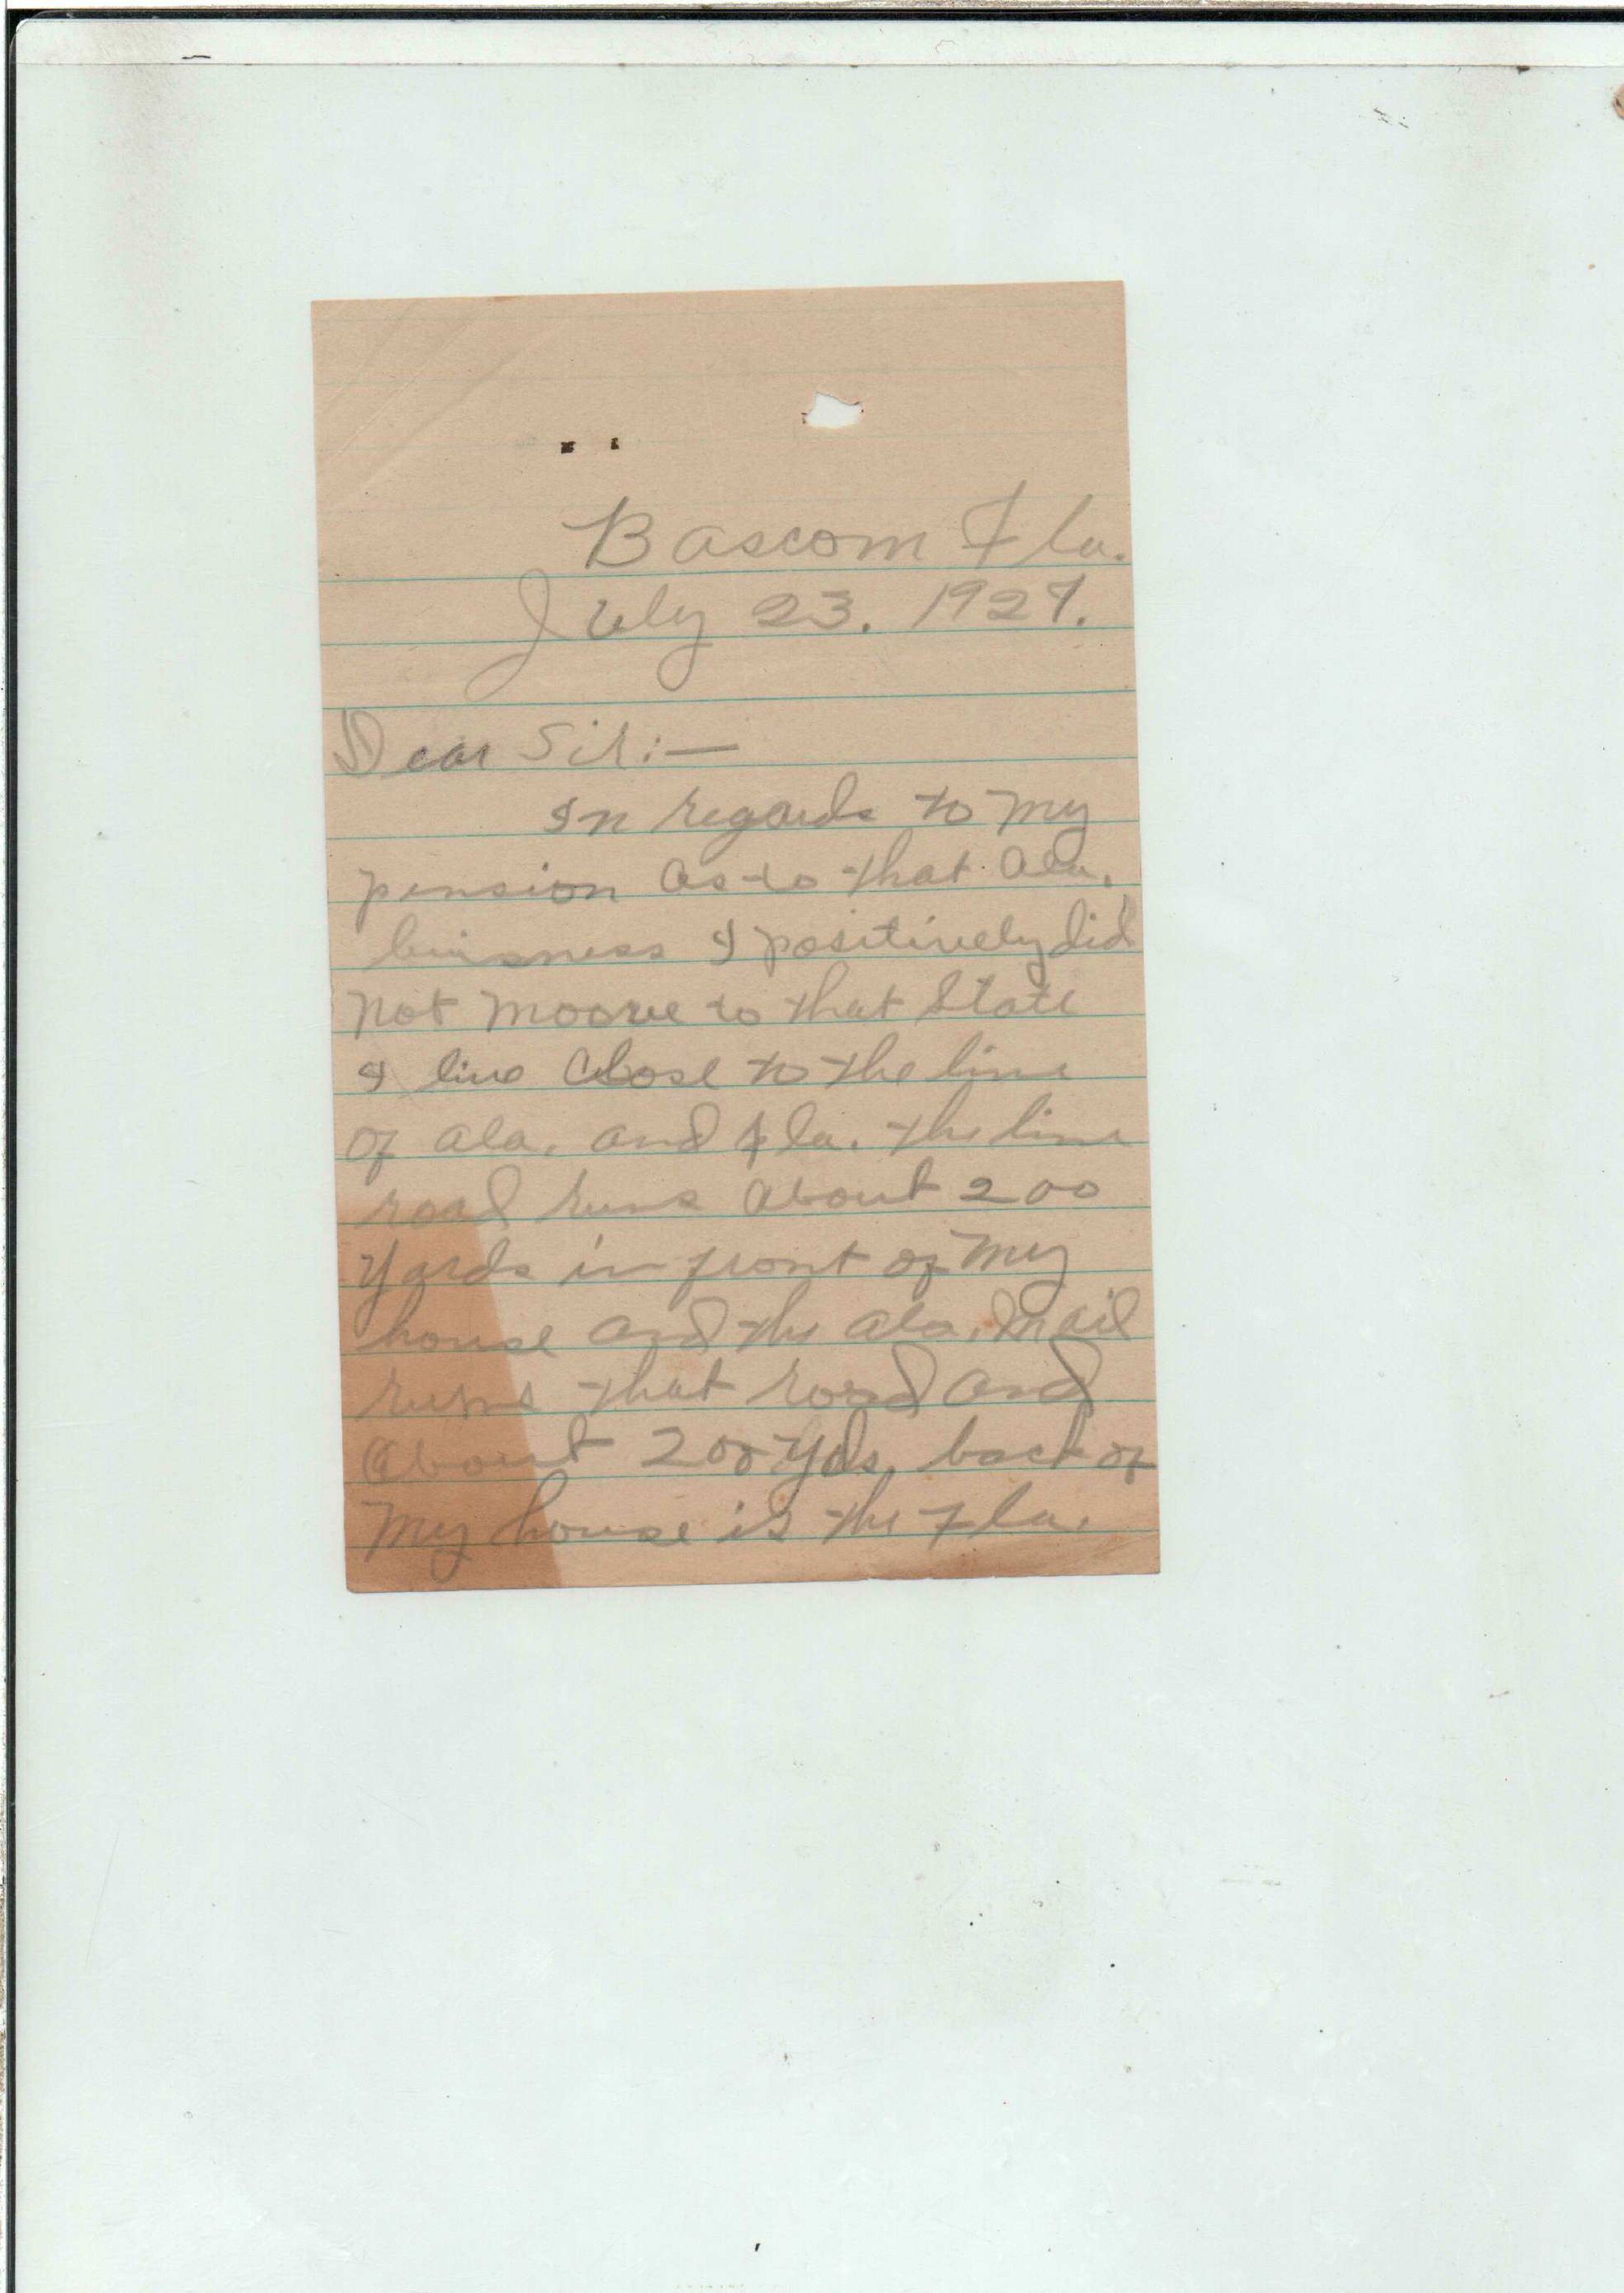 Bascom Fla.
July 23. 1927.
Dear Sir:—
In regards to my
pension as to that Ala.
buisness I positively did
not moove to that State
I live close to the line
of Ala. and Fla. the line
road runs about 200
yards in front of my
house and the Ala. mail
runs that road and
about 200 yds, back of
my house is the Fla.